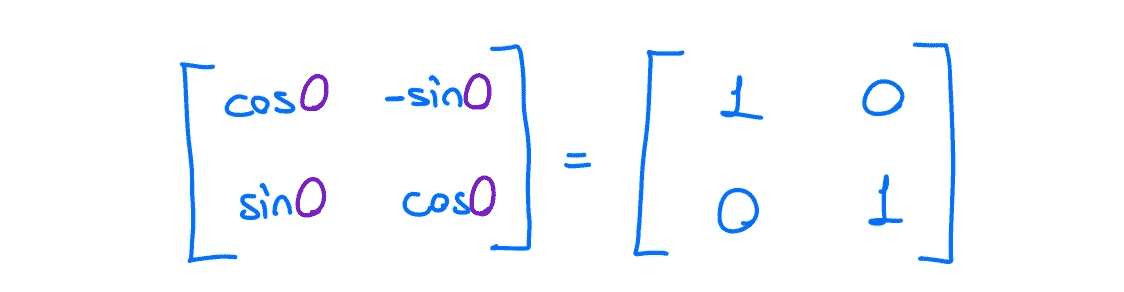 [cos0 -sin0] = [1 0]
[sin0 cos0] [0 1]